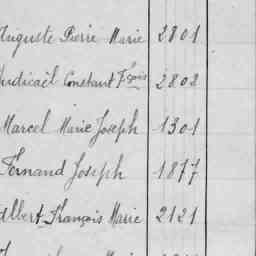 Auguste Pierre Marie 2801
Judicaël Constant Fçois 2802
Marcel Marie Joseph 1301
Fernand Joseph 1877
Albert François Marie 2121